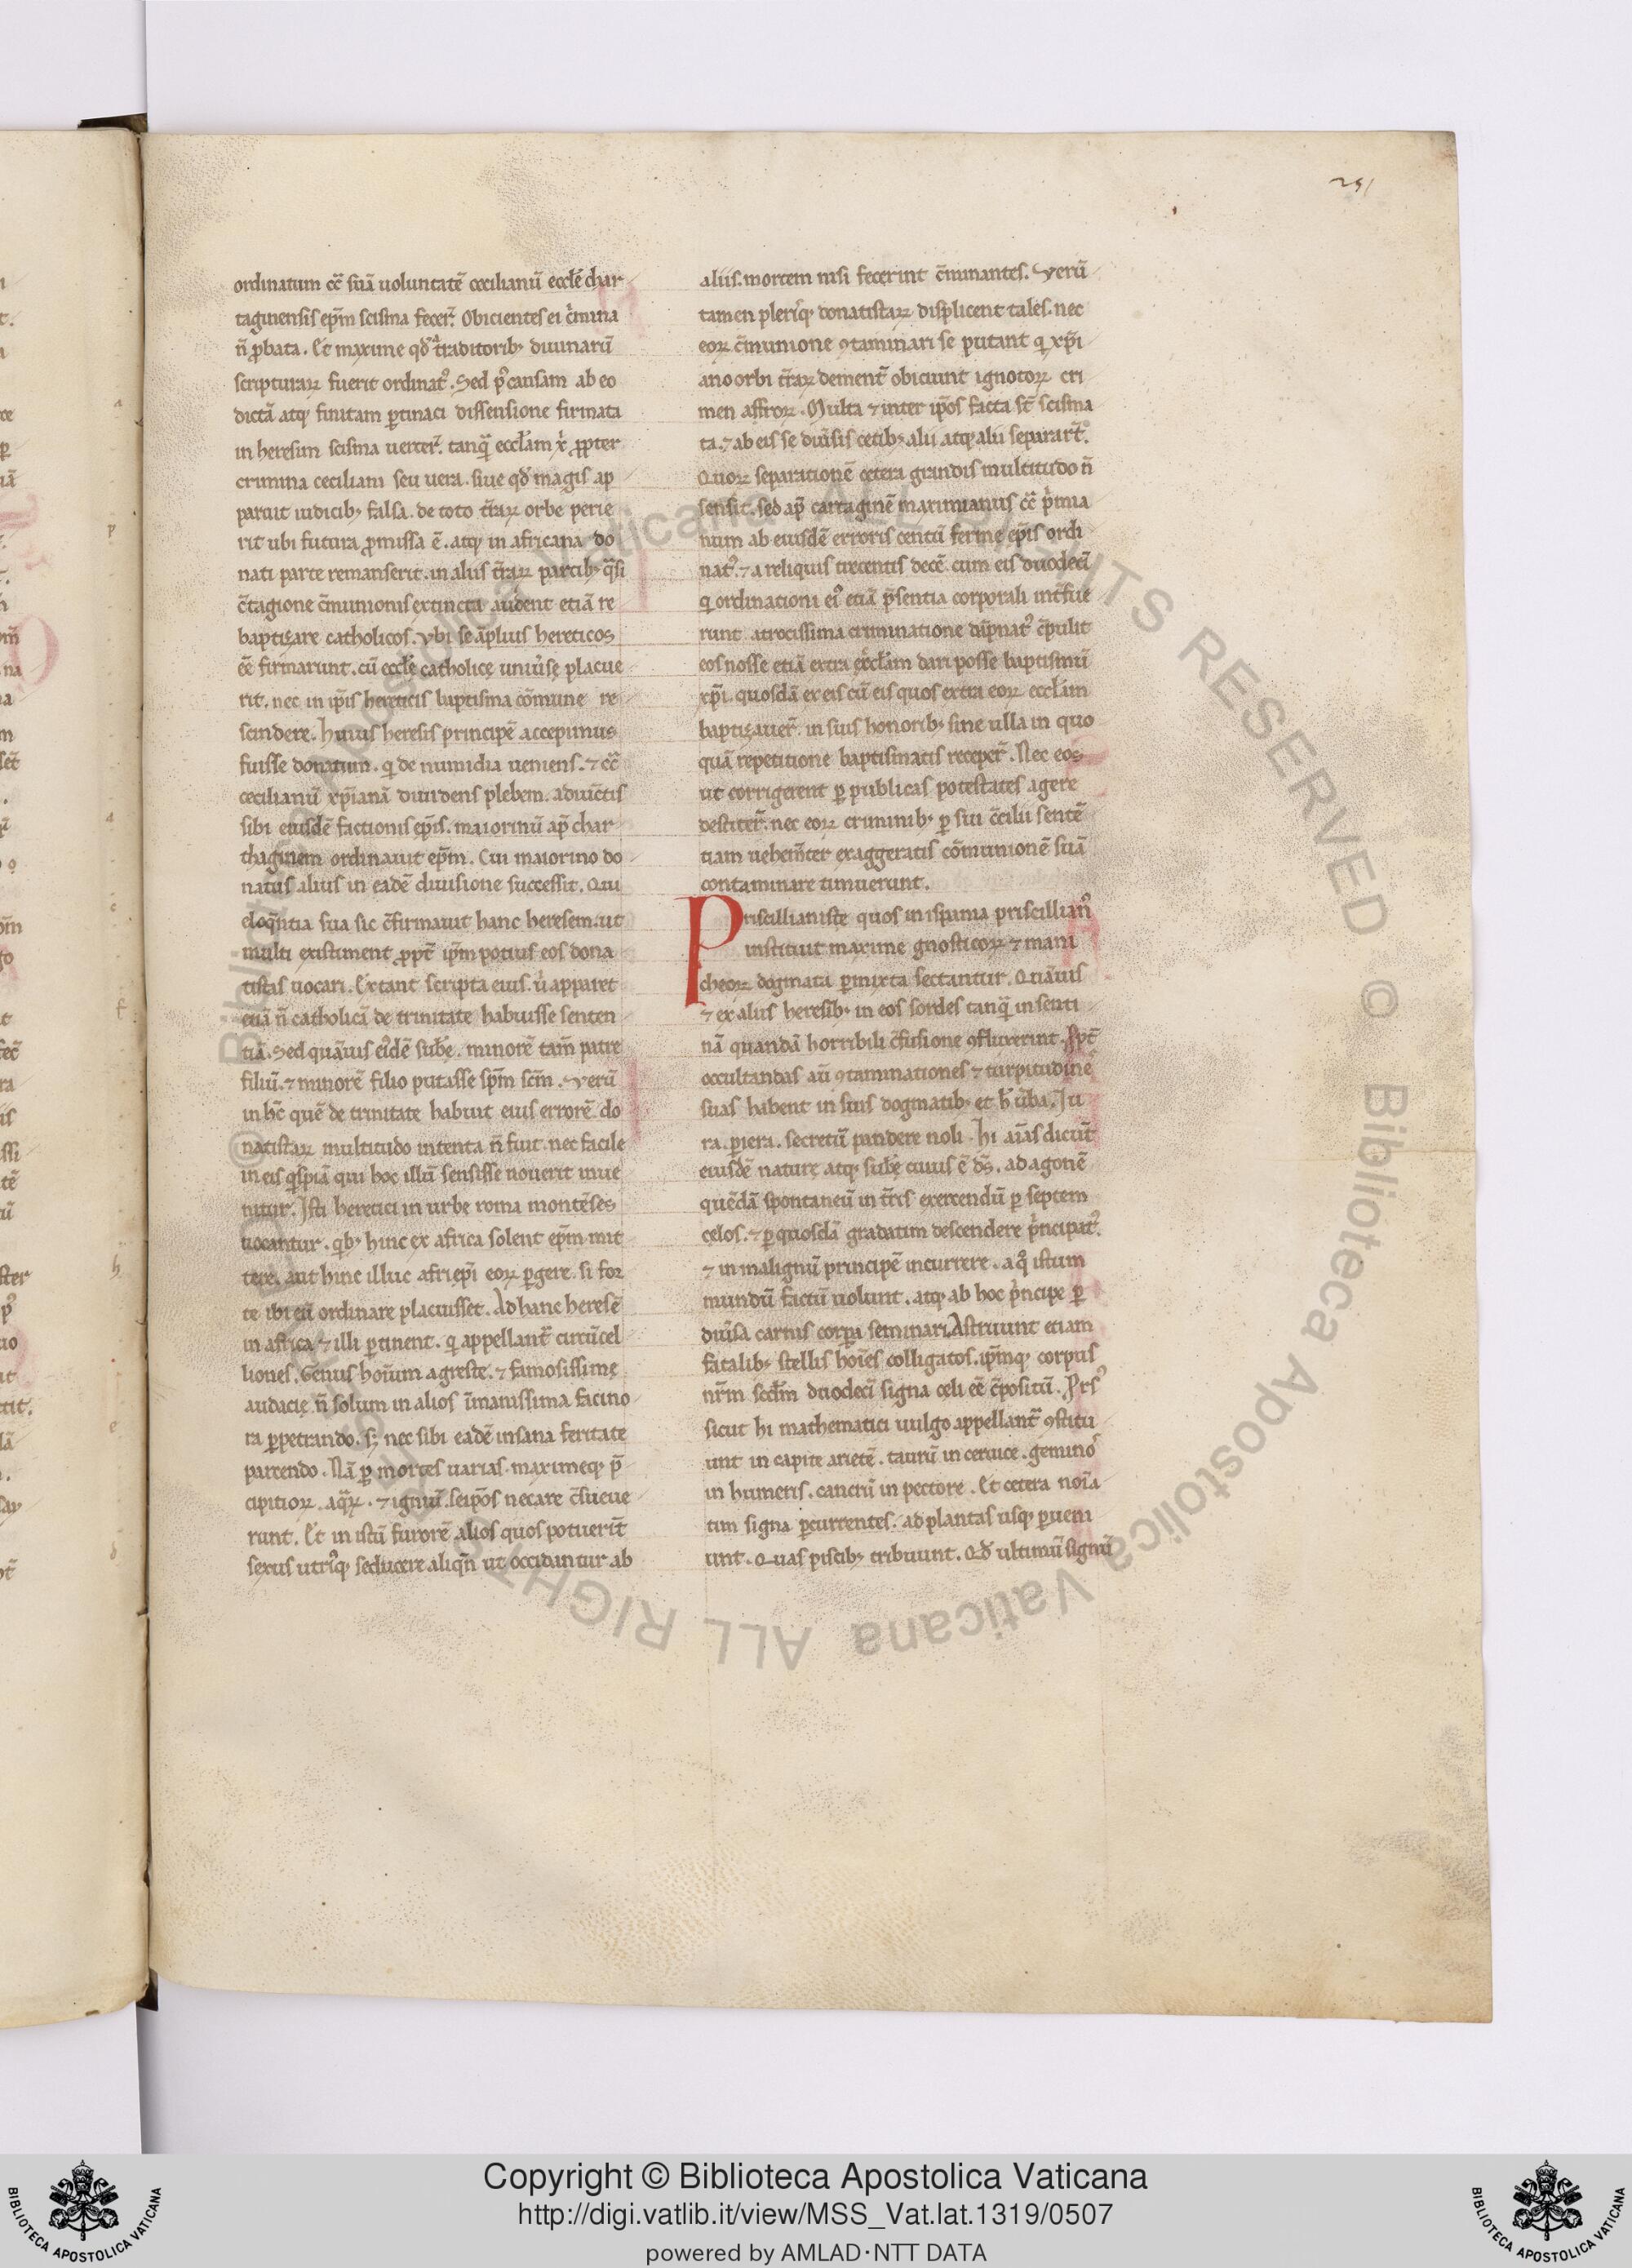 251
ordinatum cc̄ suā uoluntatē cecilianū ecclē char
taginensis ep̄m scisma fecer̄. Obicientes ei c̓mina
n̄ ꝓbata. Et maxime qd̄ a traditorib; diuinarū
scripturaꝝ fuerit ordinat᷒. Sed p᷒ causam ab eo
dictā atq; finitam ꝑtinaci dissensione firmata
in heresim scisma uerter̄. tanq̄ eccl̄am x̄ ꝓpter
crimina ceciliani seu uera. siue qd̄ magis ap
paruit iudicib; falsa. de toto t̄raꝝ orbe perie
rit ubi futura ꝓmissa ē. atq; in africana do
nati parte remanserit. in aliis t̄raꝝ partib; q̄si
c̄tagione c̄munionis extincta audent etiā re
baptizare catholicos. Vbi se āplius hereticos
eē firmarunt. cū ecclē catholicę uniūsę placue
rit. nec in ip̄is hereticis baptisma cōmune re
scindere. Huius heresis principē accepimus
fuisse donatum. q̇ de numidia ueniens. ⁊ cc̄
cecilianū xp̄ianā diuidens plebem. adiūctis
sibi eiusdē factionis ep̄is. maiorinū ap̄ char
thaginem ordinauit ep̄m. Cui maiorino do
natus alius in eadē diuisione successit. Qui
eloq̄ntia sua sic c̄firmauit hanc heresem. ut
multi existiment ꝓpt̄ ip̄m potius eos dona
tistas uocari. Extant scripta eius. u̇ apparet
etiā n̄ catholicā de trinitate habuisse senten
tiā. Sed quāuis ei᷒dē sub̄ę. minorē tam̄ patre
filiū. ⁊ minorē filio putasse sp̄m sc̄m. Verū
in hc̄ quē de trinitate habuit eius errorē do
natistaꝝ multitudo intenta n̄ fuit. nec facile
in eis q̇spiā qui hoc illū sensisse nouerit inue
nitur. Isti heretici in urbe roma montēses
uocantur. q̇b; hinc ex africa solent ep̄m mit
tere. aut hinc illuc afri ep̄i eoꝝ ꝑgere. si for
te ibi eū ordinare placuisset. Ad hanc heresē
in affrica ⁊ illi ꝑtinent. q̇ appellant᷑ circūcel
liones. Genus hoīum agreste. ⁊ famosissimę
audacię n̄ solum in alios īmanissima facino
ra ꝑpetrando. s; nec sibi eadē insana feritate
parcendo. Nā ꝑ mortes uarias. maximeq; p̄
cipitioꝝ. aq̄ꝝ. ⁊ igniū. seip̄os necare c̄sueue
runt. Et in istū furorē alios quos potuerīt
sexus utri᷒q; seducere aliqn̄ ut occidantur ab
aliis. mortem nisi fecerint c̄minantes. Verū
tamen pleri᷒q; donatistaꝝ displicent tales. nec
eoꝝ c̄munione ꝯtaminari se putant q̇ xp̄i
ano orbi t̄raꝝ dement᷑ obiciunt ignotoꝝ cri
men affroꝝ. Multa ⁊ inter ip̄os facta st̄ scisma
ta. ⁊ ab eis se diūsis cetib; alii atq; alii separart̄.
Quoꝝ separationē cetera grandis multitudo n̄
sensit. sed ap̄ cartaginē maximianus cc̄ p̓mia
num ab eiusdē erroris centū ferme ep̄is ordi
nat᷒. ⁊ a reliquis trecentis decē cum eis duodecī
q̇ ordinationi ei᷒ etiā p̄sentia corporali int̄fue
runt atrocissima criminatione dāpnat᷒ c̄pulit
eos nosse etiā extra ecclām dari posse baptismū
xp̄i. quosdā ex eis cū eis quos extra eoꝝ eccl̄am
baptizauer̄. in suis honorib; sine ulla in quo
quā repetitione baptismatis receper̄. Nec eos
ut corrigerent ꝑ publicas potestates agere
destiter̄. nec eoꝝ criminib; ꝑ sui c̄cilii sentē
tiam uehem̄ter exaggeratis cōmunionē suā
contaminare timuerunt.
Priscillianistę quos in ispania priscillian᷒
instituit maxime gnosticoꝝ ⁊ mani
cheoꝝ dogmata ꝑmixta sectantur. Quāuis
⁊ ex aliis heresib; in eos sordes tanq̄ in senti
nā quandā horribili c̄fusione ꝯfluxerint. Ꝓpt̄
occultandas aū ꝯtaminationes ⁊ turpitudinē
suas habent in suis dogmatib; et h̄ ūba. Iu
ra. ꝑiera. secretū prodere noli. Hi aīas dicūt
eiusdē naturę atq; sub̄ę cuius ē ds̄. ad agonē
quēdā spontaneū in t̄ris exercendū ꝑ septem
celos. ⁊ ꝑ quosdā gradatim descendere p̓ncipat᷒.
⁊ in malignū principē incurrere. a q̊ istum
mundū factū uolunt. atq; ab hoc p̓ncipe ꝑ
diūsa carnis corꝑa seminari. Astruunt etiam
fatalib; stellis hoīes colligatos. ip̄mq; corpus
nr̄m scdm̄ duodecī signa celi eē c̄positū.
sicut hi mathematici uulgo appellant᷑ ꝯstitu
unt in capite arietē. taurū in ceruice. gemino᷒
in humeris. cancrū in pectore. Et cetera noīa
tim signa ꝑcurrentes. ad plantas usq; ꝑueni
unt. Quas piscib; tribuunt. Qd̄ ultimū signū
© Biblioteca Apostolica Vaticana ALL RIGHTS RESERVED © Biblioteca Apostolica Vaticana ALL RIGHTS RESERVED
Copyright © Biblioteca Apostolica Vaticana
http://digi.vatlib.it/view/MSS_Vat.lat.1319/0507
powered by AMLAD·NTT DATA
BIBLIOTECA APOSTOLICA VATICANA
BIBLIOTECA APOSTOLICA VATICANA